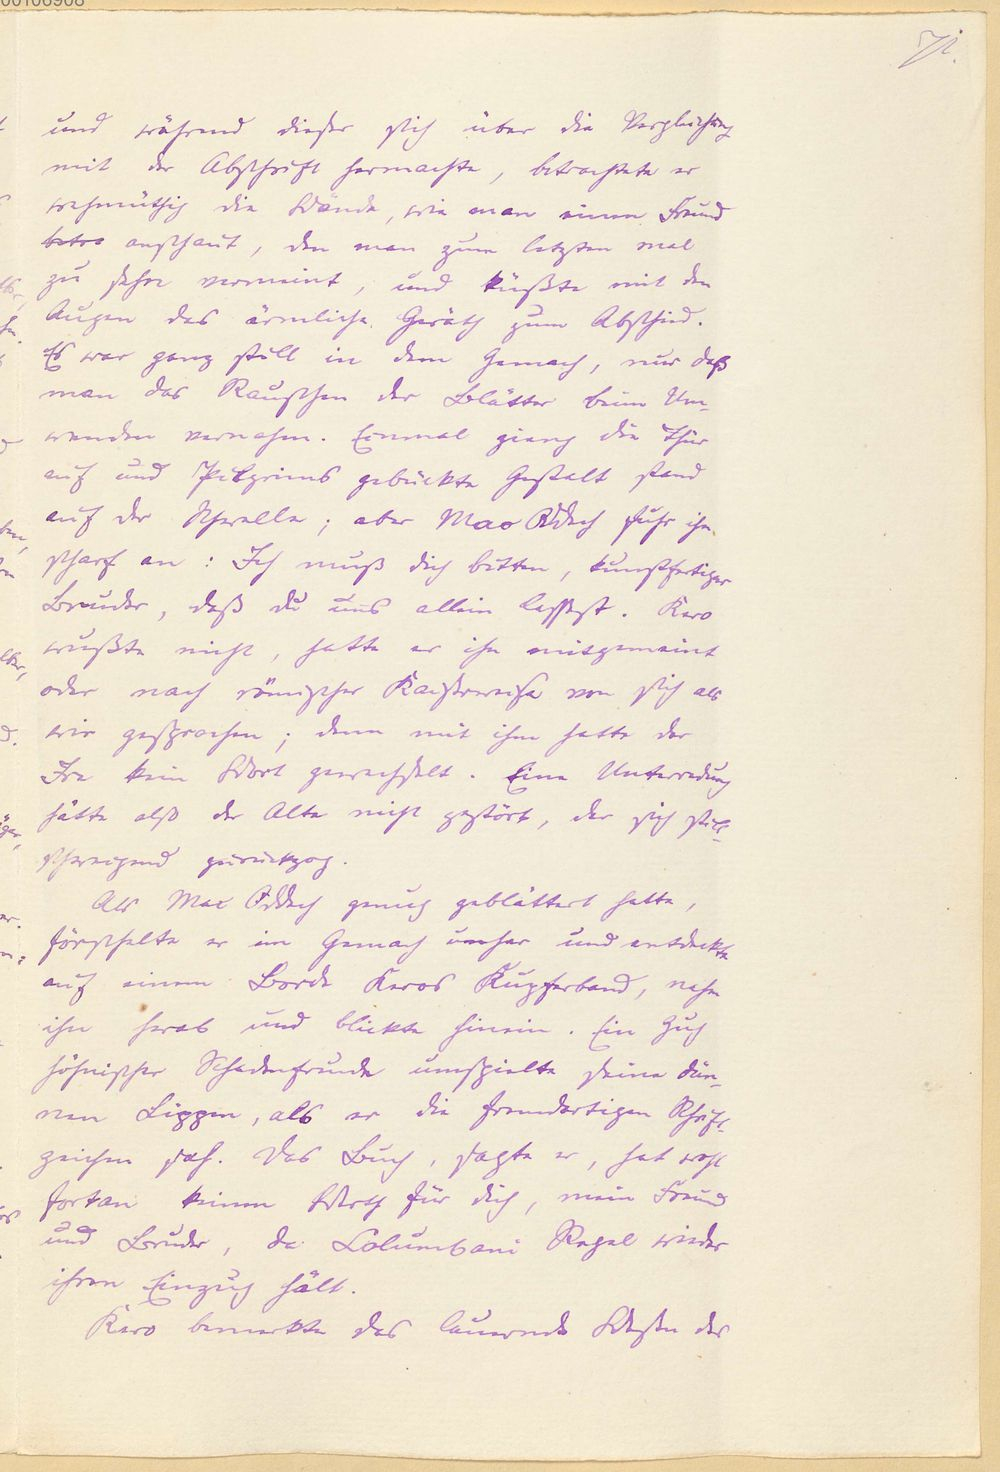 71.
und während dieser sich über die Vergleichung
mit der Abschrift hermachte, betrachtete er
wehmüthig die Wände, wie man einen Freund
betra anschaut, den man zum letzten mal
zu sehen vermeint, und küßte mit den
Augen das ärmliche Geräth zum Abschied.
Es war ganz still in dem Gemach, nur daß
man das Rauschen der Blätter beim Um-
wenden vernahm. Einmal gieng die Thür
auf und Piligrims gebückte Gestalt stand
auf der Schwelle; aber Mac Oddoch fuhr ihn
scharf an: Ich muß dich bitten, kunstfertiger
Bruder, daß du uns allein lassest. Kero
wußte nicht, hatte er ihn mitgemeint
oder nach römischer Kaiserweise von sich als
wir gesprochen; denn mit ihm hatte der
Ire kein Wort gewechselt. Eine Unterredung
hätte also der Alte nicht gestört, der sich still-
schweigend zurückzog.
Als Mac Oddoch genug geblättert hatte,
forschelte er im Gemach umher und entdeckte
auf einem Borde Keros Kupferband, nahm
ihn herab und blickte hinein. Ein Zug
höhnischer Schadenfreude umspielte seine dün-
nen Lippen, als er die fremdartigen Schrift-
zeichen sah. Das Buch, sagte er, hat wohl
fortan keinen Werth für dich, mein Freund
und Bruder, da Columbani Regel wieder
ihren Einzug hält.
Kero bemerkte das lauernde Wesen des